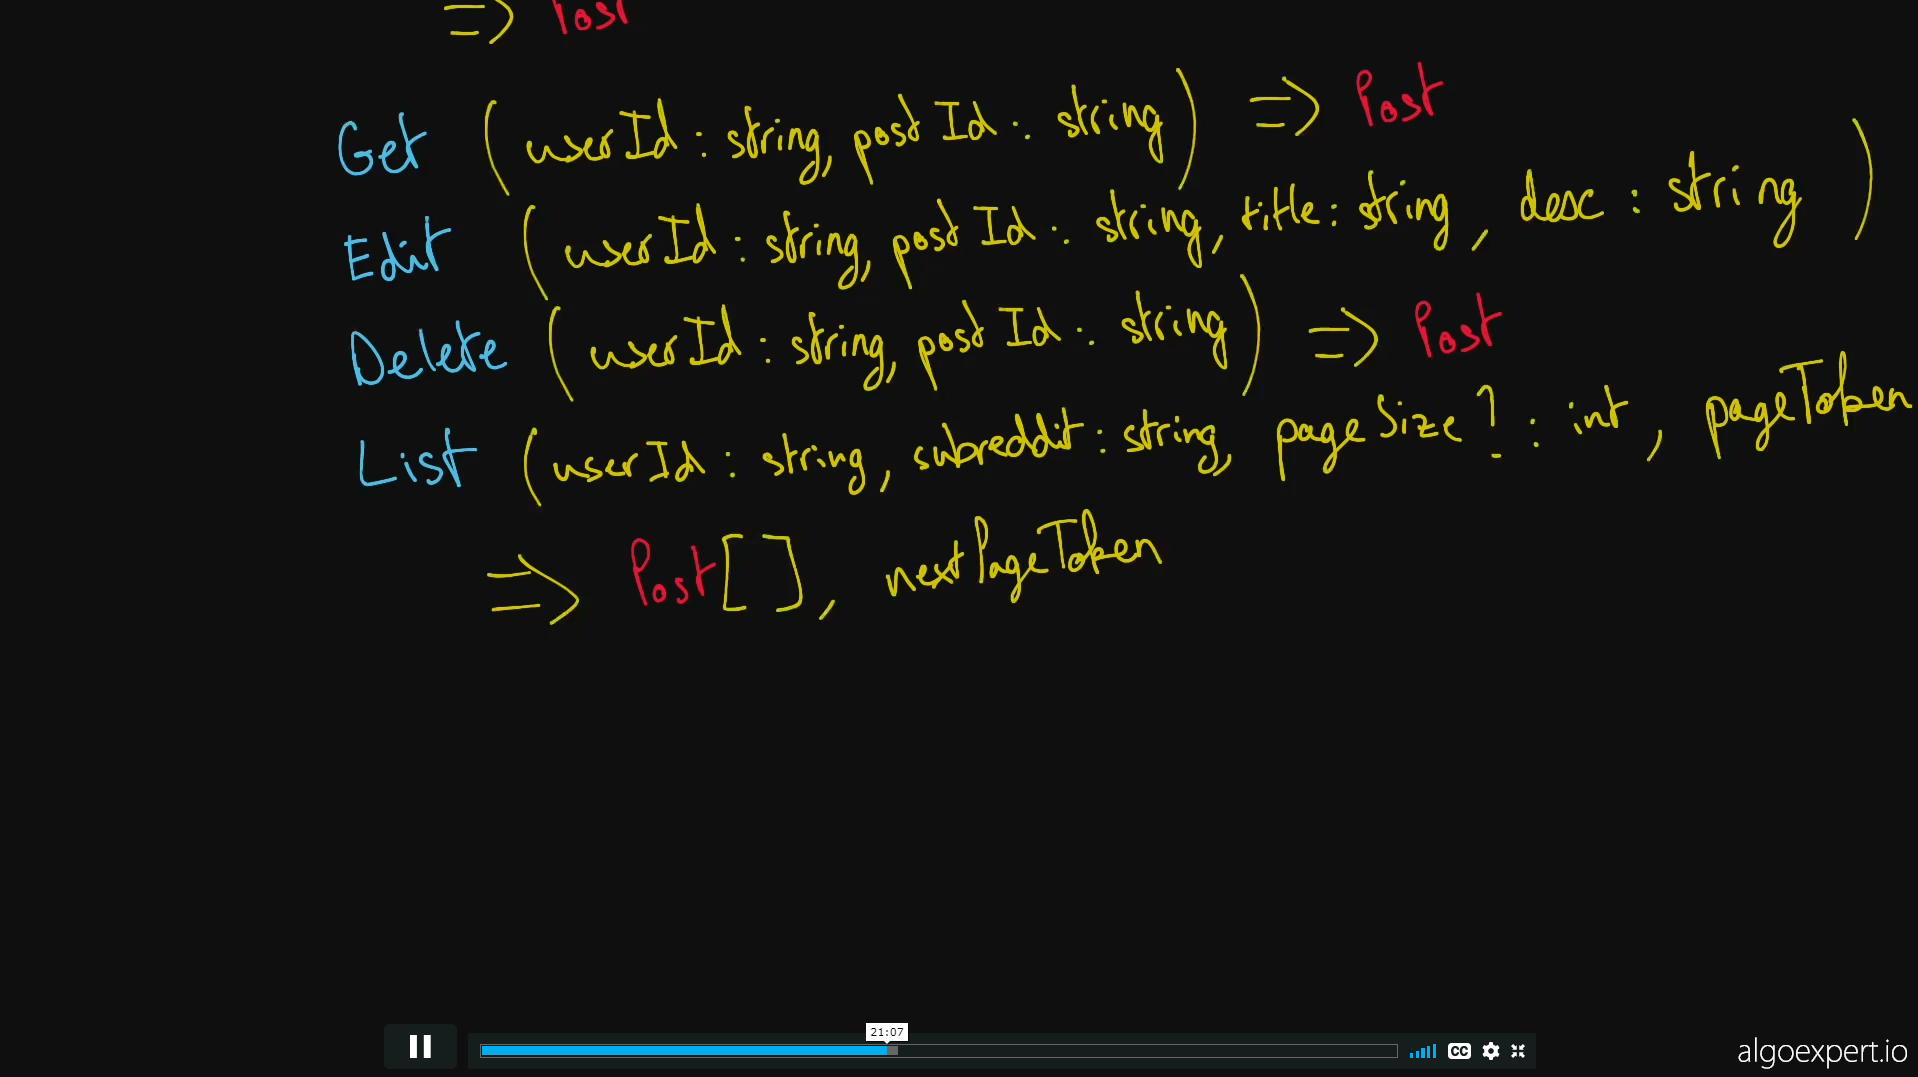 => Post
Get (userId: string, postId: string) => Post
Edit (userId: string, postId: string, title: string, desc: string)
Delete (userId: string, postId: string) => Post
List (userId: string, subreddit: string, pageSize?: int, pageToken
=> Post[], nextPageToken
21:07
CC
algoexpert.io